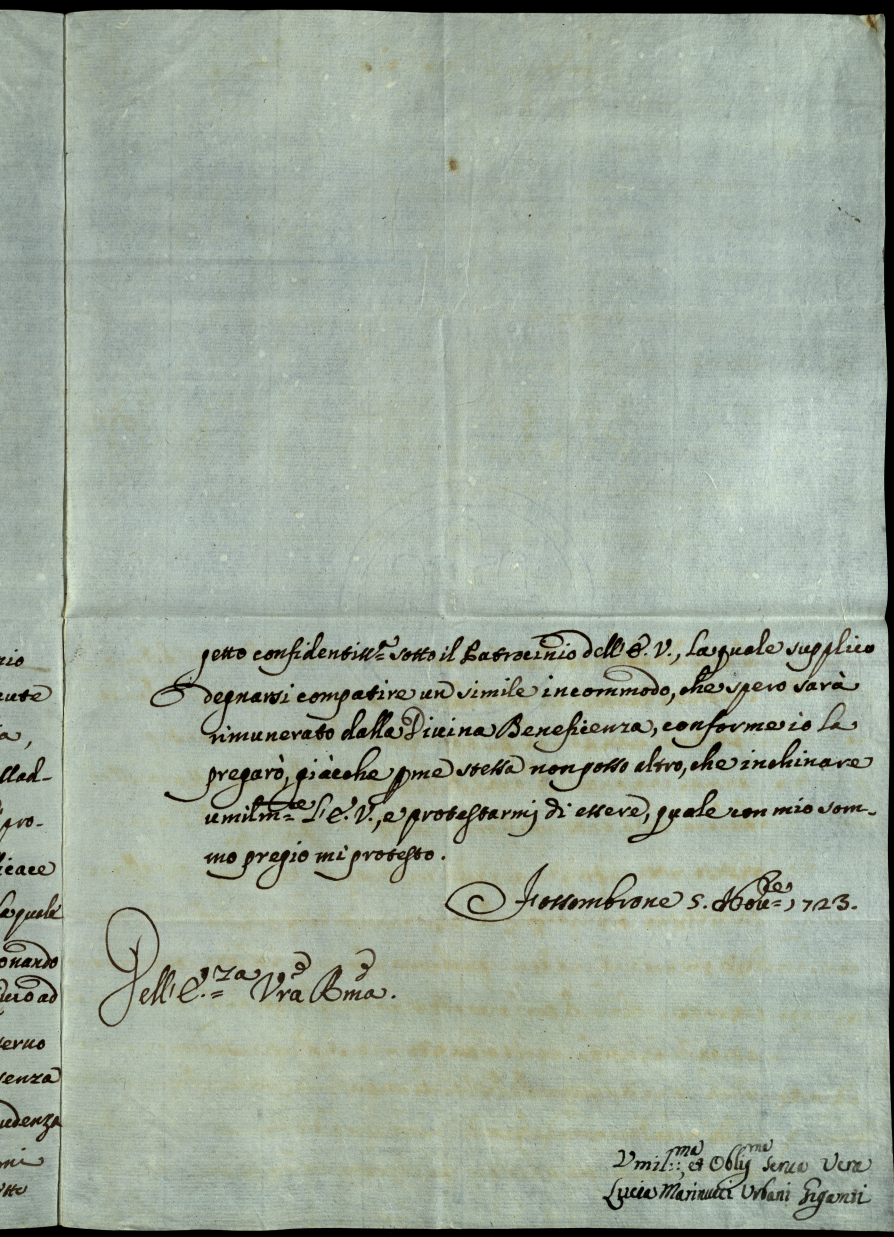 nio
ente
ia,
llad-
pro-
icace
la quale
onardo
uerò ad
terno
senza
udenza
mi
tte
getto confidentiss.te sotto il Patrocinio dell'E. V., La quale supplico
degnarsi compatire un simile incommodo, che spero sarà
rimunerato dalla Divina Beneficenza, conforme io la
pregarò, giàcche p me stessa non posso altro, che inchinare
umilm.te L'E. V., e protestarmj di essere, quale con mio som-
mo pregio mi protesto.
Fossombrone 5. Nov.re 1723.
Dell'E.za Vra Rma.
Umil.ma et Oblig.ma Serva Vera
Lucia Marinucci Urbani Giganti